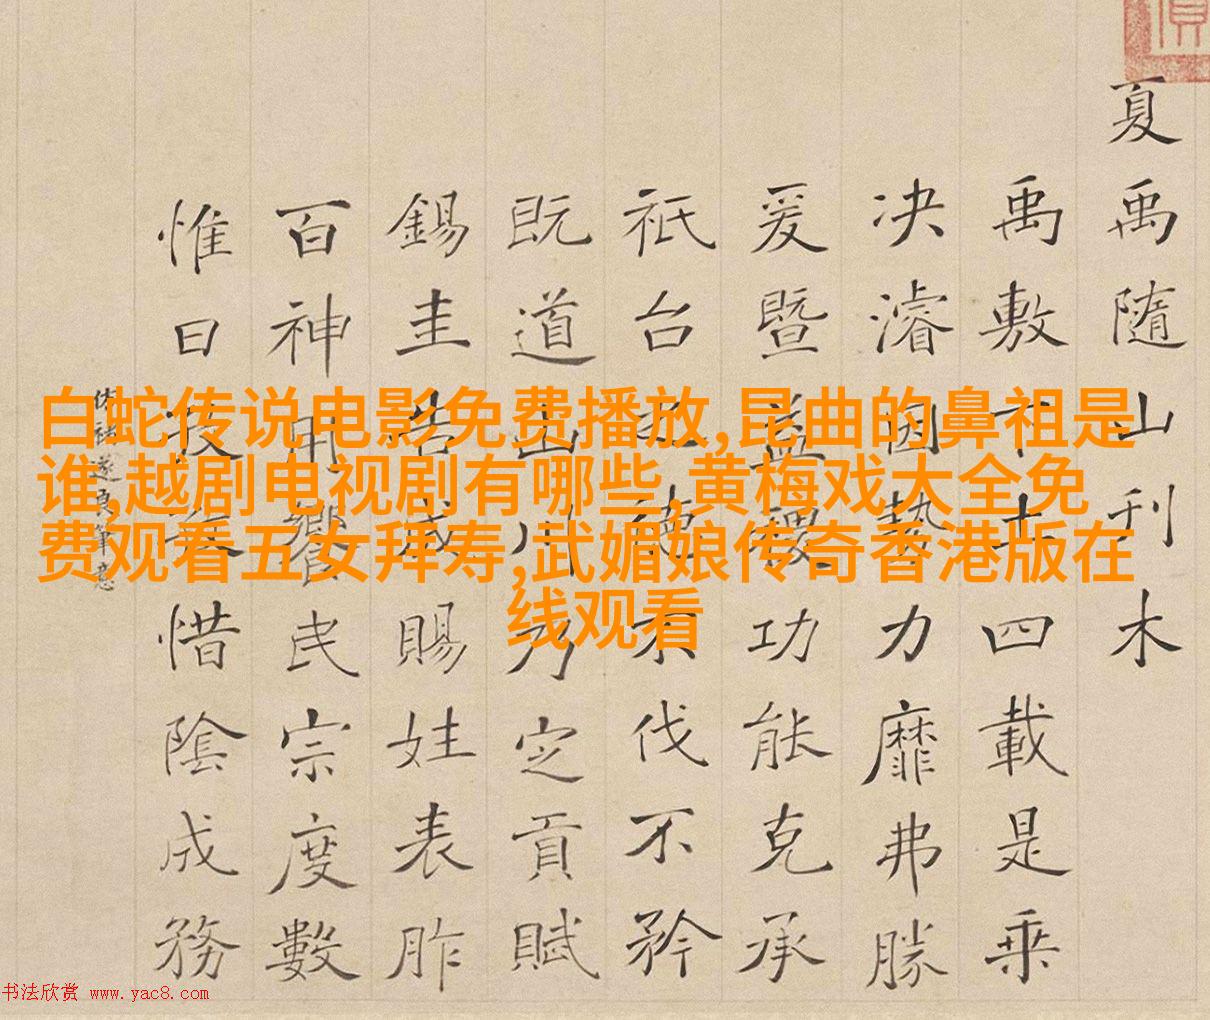 白蛇传说电影免费播放,昆曲的鼻祖是
谁,越剧电视剧有哪些,黄梅戏大全免
费观看五女拜寿,武媚娘传奇香港版在
线观看
夏禹隨山刊木
禹敷下土四載是乘
决濬因勢力靡弗勝
爰暨益稷功能克承
祇台德不伐不矜
既道山川乃定貢賦
錫圭告成賜姓表胙
百神用饗民宗度數
惟日孜孜惜陰成務
遂良筆意
书法欣赏 www.yac8.com